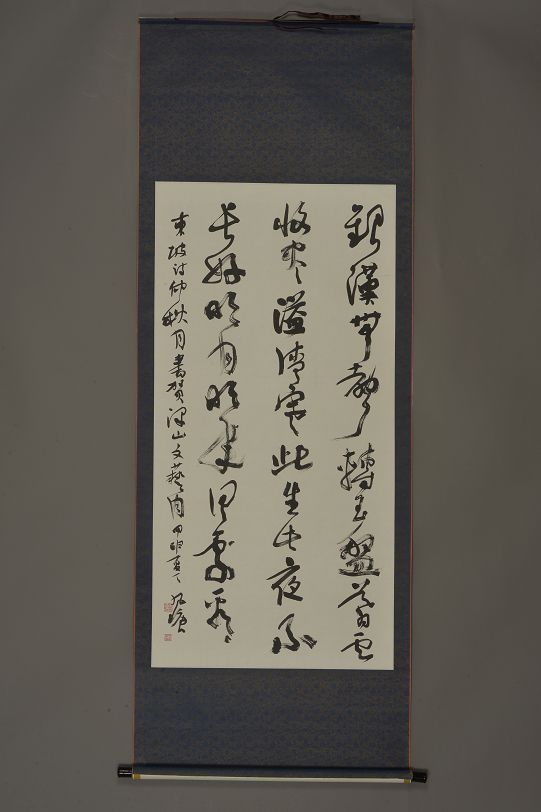 銀漢無聲轉玉盤暮雲
收盡溢清寒此生此夜不
長好明月明年何處看
東坡诗仲秋月書賀梁山文藝周甲申夏